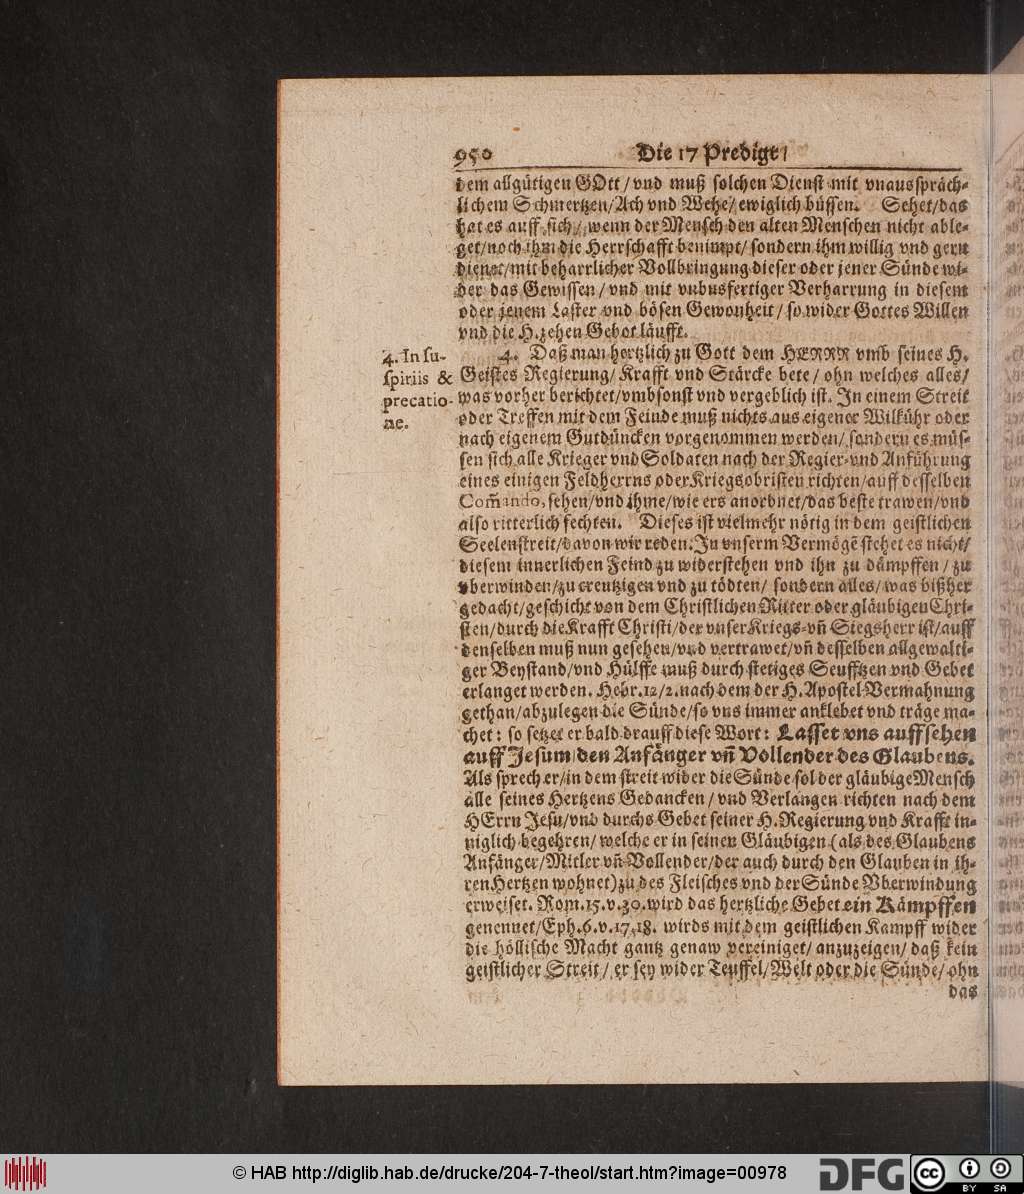 950 Die 17 Predigt/
dem allgütigen GOtt/ vnd muß solchen Dienst mit vnausspräch-
lichem Schmertzen/Ach vnd Wehe/ ewiglich büssen. Sehet/das
hat es auff sich/ wenn der Mensch den alten Menschen nicht able-
get/noch ihm die Herrschafft benimpt/ sondern ihm willig vnd gern
dienet/mit beharrlicher Vollbringung dieser oder jener Sünde wi-
der das Gewissen/ vnd mit vnbusfertiger Verharrung in diesem
oder jenem Laster vnd bösen Gewonheit/ so wider Gottes Willen
vnd die H. zehen Gebot läufft.
4. In su-
spiriis &
precatio-
ne.
4. Daß man hertzlich zu Gott dem HERRN vmb seines H.
Geistes Regierung/ Krafft vnd Stärcke bete/ ohn welches alles/
was vorher berichtet/vmbsonst vnd vergeblich ist. In einem Streit
oder Treffen mit dem Feinde muß nichts aus eigener Wilkühr oder
nach eigenem Gutdüncken vorgenommen werden/ sondern es müs-
sen sich alle Krieger vnd Soldaten nach der Regier-vnd Anführung
eines einigen Feldherrns oder Kriegsobristen richten/auff desselben
Com̃ando, sehen/vnd ihme/wie ers anordnet/das beste trawen/vnd
also ritterlich fechten. Dieses ist vielmehr nötig in dem geistlichen
Seelenstreit/davon wir reden. In vnserm Vermögẽ stehet es nicht/
diesem innerlichen Feind zu widerstehen vnd ihn zu dämpffen/ zu
vberwinden/zu creutzigen vnd zu tödten/ sondern alles/ was bißher
gedacht/geschicht von dem Christlichen Ritter oder gläubigen Chri-
sten/durch die Krafft Christi/der vnser Kriegs-vñ Siegsherr ist/auff
denselben muß nun gesehen/vnd vertrawet/vñ desselben allgewalti-
ger Beystand/vnd Hülffe muß durch stetiges Seufftzen vnd Gebet
erlanget werden. Hebr.12/2. nach dem der H. Apostel Vermahnung
gethan/abzulegen die Sünde/so vns immer anklebet vnd träge ma-
chet: so setzet er bald drauff diese Wort: Lasset vns auffsehen
auff Jesum/den Anfänger vñ Vollender des Glaubens.
Als sprech er/in dem streit wider die Sünde sol der gläubige Mensch
alle seines Hertzens Gedancken/ vnd Verlangen richten nach dem
HErrn Jesu/vnd durchs Gebet seiner H. Regierung vnd Krafft in-
niglich begehren/ welche er in seinen Gläubigen (als des Glaubens
Anfänger/Mitler vñ Vollender/der auch durch den Glauben in ih-
ren Hertzen wohnet) zu des Fleisches vnd der Sünde Vberwindung
erweiset. Rom.15.v.30. wird das hertzliche Gebet ein Kämpffen
genennet/Eph.6.v.17.18. wirds mit dem geistlichen Kampff wider
die höllische Macht gantz genaw vereiniget/ anzuzeigen/ daß kein
geistlicher Streit/ er sey wider Teuffel/Welt oder die Sünde/ ohn
das
© HAB http://diglib.hab.de/drucke/204-7-theol/start.htm?image=00978
DFG
cc BY SA